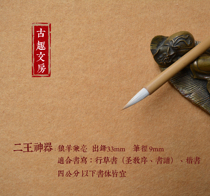 古趣文房
二王神器：狼羊兼毫 出鋒33mm 筆徑9mm
適合書寫：行草書（圣教序、書譜）、楷書
四公分以下書体皆宜